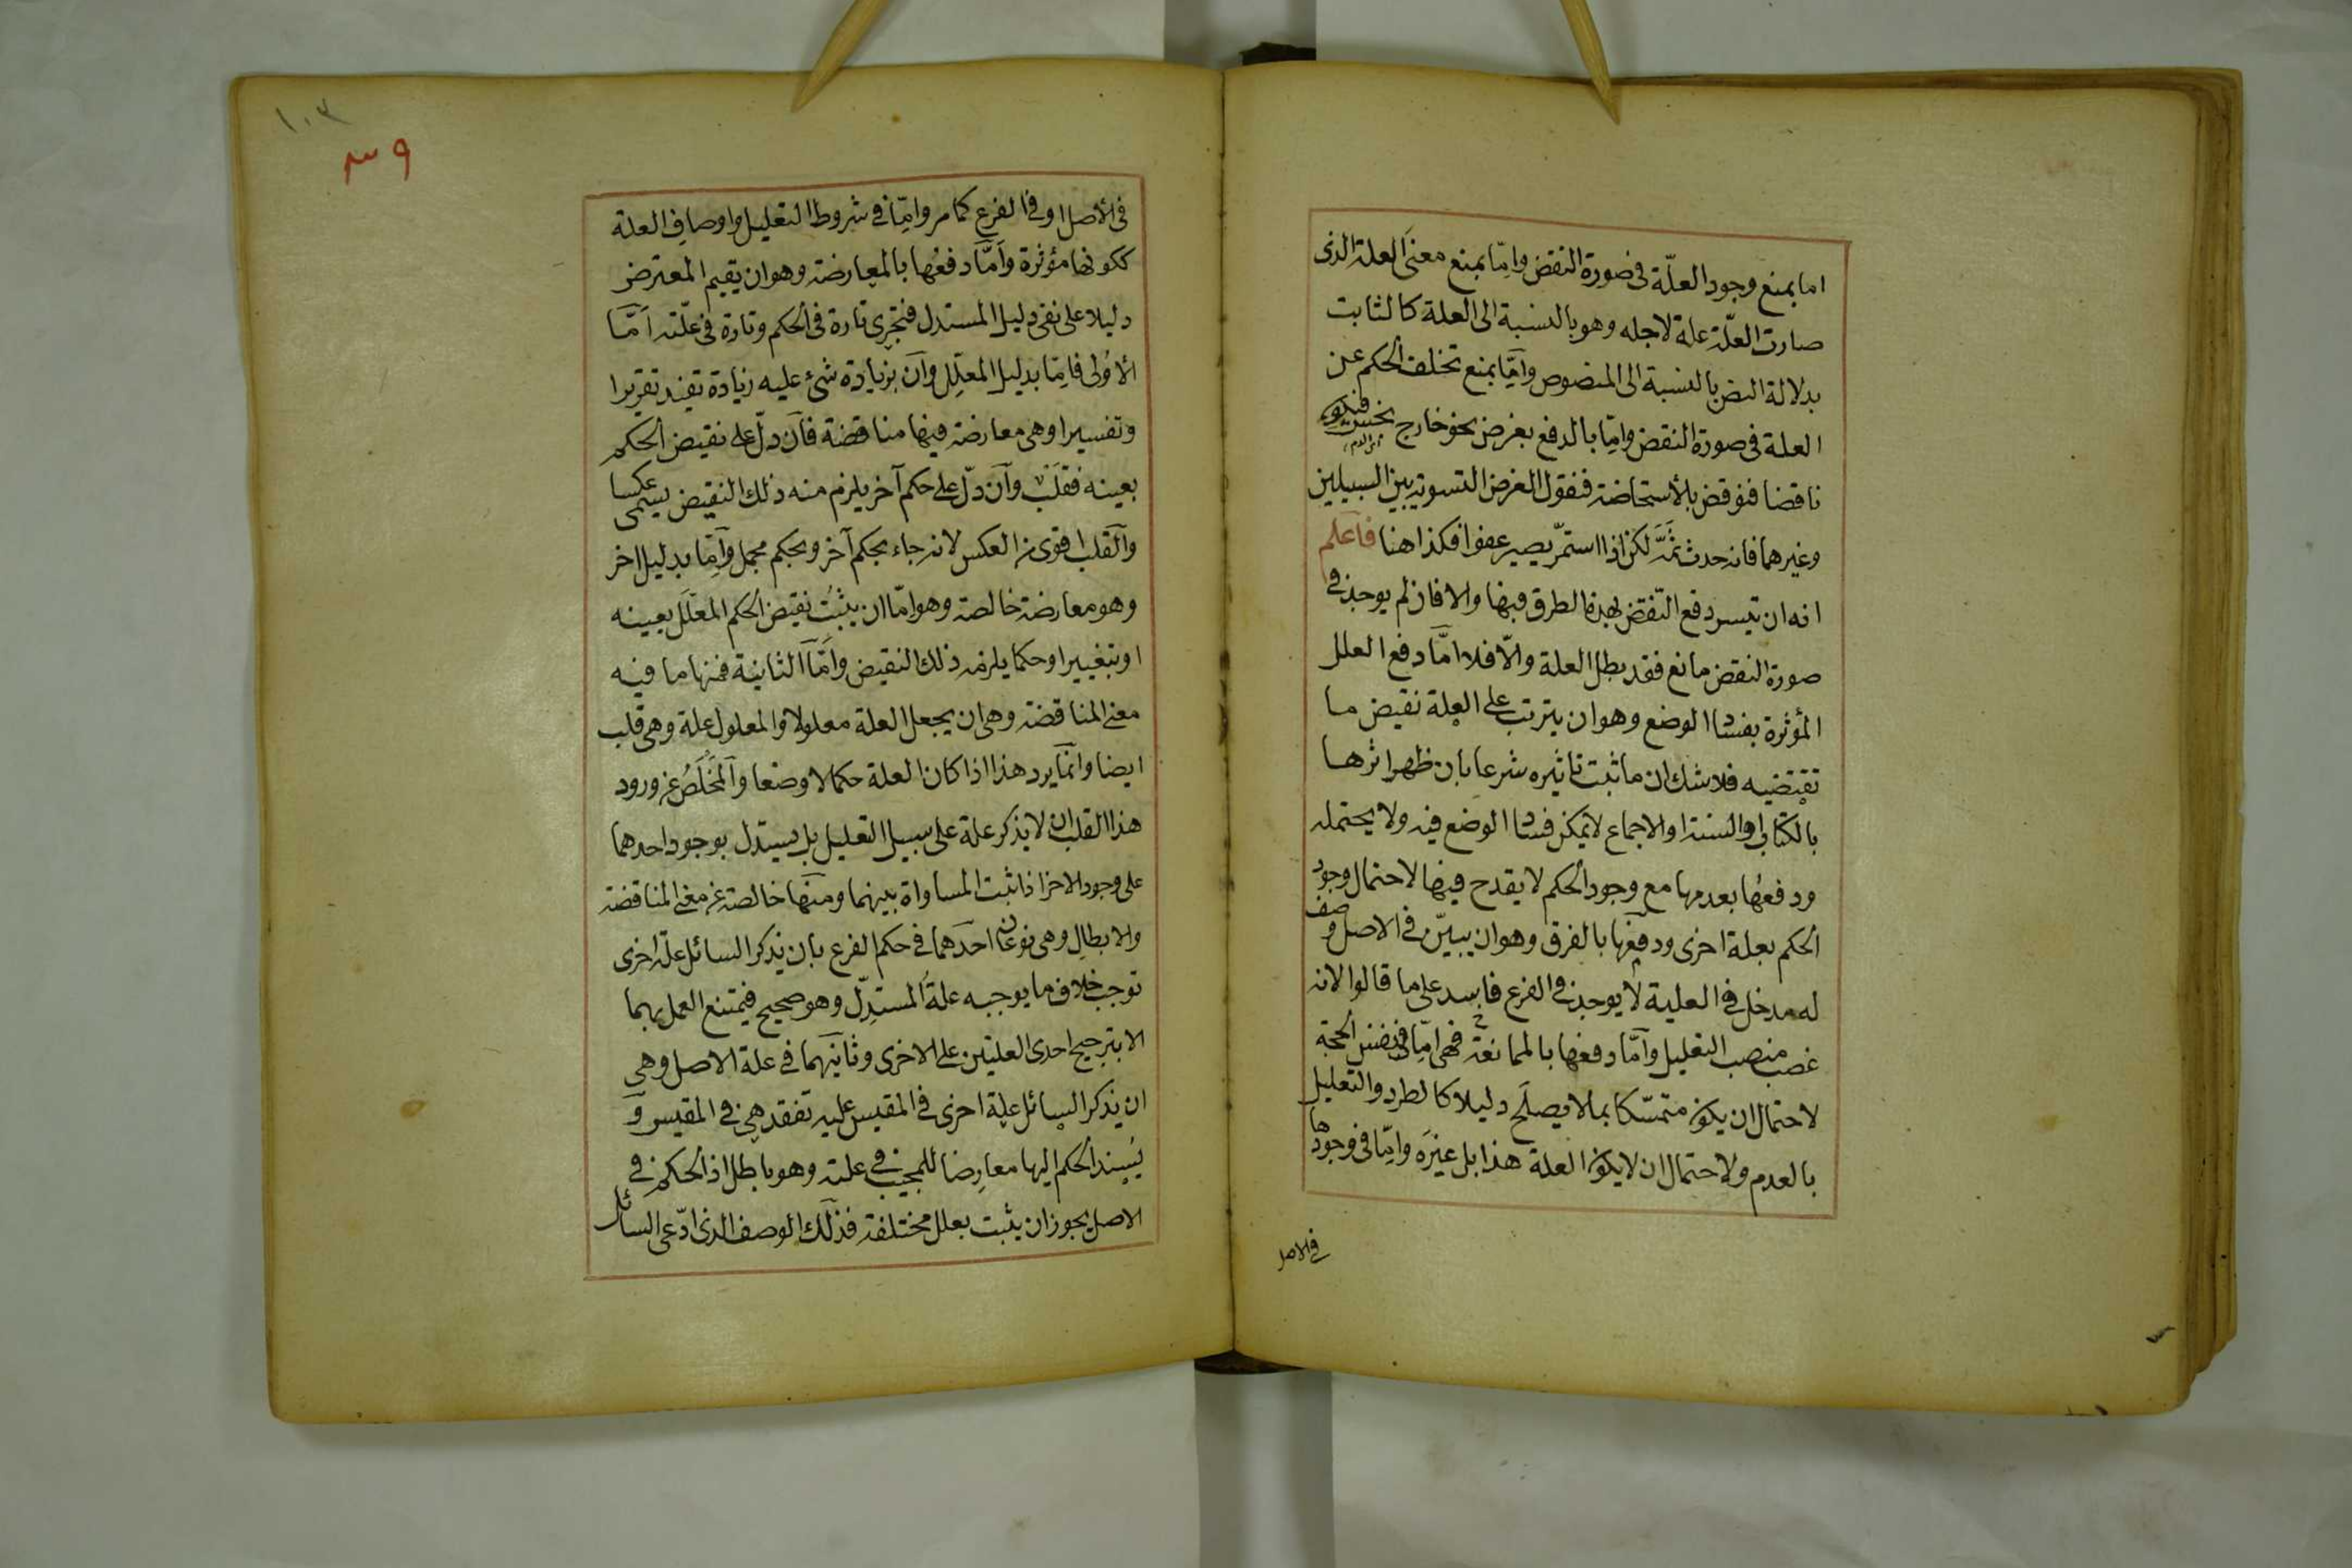 اما بمنع وجود العلّة فى صورة النقض وامّا بمنع معنَى العلة الذى
صارت العلّة علة لاجله وهو بالنسبة الى العلة كالثابت
بدلالة النص بالنسبة الى المنصوص وامّا بمنع تخلف الحكم عن
العلة فى صورة النقض وامّا بالدفع بغرض نحو خارج نجس فيكون
اى الدم
ناقضا فنوقض بالأستحاضة فنقول الغرض التسوية بين السبيلين
وغيرهما فانه حدث ثَمَّه لكن اذا استمرّ يصير عفوا فكذا هنا فاعلم
انه ان تيسر دفع النّقض بهذه الطرق فبها والا فان لم يوجد فى
صورة النقض مانع فقد بطل العلة والّا فلا امّا دفع العلل
المؤثرة بفساد الوضع وهو ان يترتب على العلة نقيض ما
تقتضيه فلا شك ان ما ثبت تاثيره شرعا بان ظهر اثرها
بالكتاب او السنة او الاجماع لا يمكن فساد الوضع فيه ولا يحتمله
ودفعُها بعدمها مع وجود الحكم لا يقدح فيها لاحتمال وجود
الحكم بعلة اخرى ودفعها بالفرق وهو ان يبيّن فى الاصل وصف
له مدخل فى العلية لا يوجد فى الفرع فاسد على ما قالوا لانه
غصب منصب التعليل وامّا دفعها بالممانعة فهى امّا فى نفس الحجة
لاحتمال ان يكون متمسّكا بما لا يصلَح دليلا كالطرد والتعليل
بالعدم ولاحتمال ان لا يكون العلة هذا بل غيرَه وامّا فى وجودها
فى الاصل
١٠٣
٣٩
فى الأصل او فى الفرع كما مر وامّا فى شروط التعليل واوصاف العلة
ككونها مؤثرة وامَّا دفعُها بالمعارضة وهو ان يقيم المعترض
دليلا على نفى دليل المستدل فتجرى تارة فى الحكم وتارة فى علّته امّا
الأُولى فامّا بدليل المعلّل وان بزيادة شئ عليه زيادة تفيد تقريرا
وتفسيرا وهى معارضة فيها مناقضة فان دلّ على نقيض الحكم
بعينه فقلَبٌ وان دلّ على حكم آخر يلزم منه ذلك النقيض يسمى عكسا
والقلب اقوى من العكس لانه جاء بحكم آخر وبحكم مجمل وامّا بدليل اخر
وهو معارضة خالصة وهو امّا ان يثبُت نقيض الحكم المعلَّل بعينه
او بتغيير او حكما يلزمه ذلك النقيض وامّا الثانية فمنها ما فيه
معنى المناقضة وهى ان يجعل العلة معلولا والمعلول علة وهى قلب
ايضا وانّما يرد هذا اذا كان العلة حكما لا وصفا والمَخلَصُ عن ورود
هذا القلب ان لا يذكر علة على سبيل التعليل بل يستدل بوجود احدهما
على وجود الاخر اذا ثبت المساواة بينهما ومنها خالصة عن معنى المناقضة
والابطال وهى نوعان احدهما فى حكم الفرع بان يذكر السائل علّة اخرى
توجب خلاف ما يوجبه علةُ المستدِلّ وهو صحيح فيمتنع العمل بهما
الا بترجيح احدى العلتين على الاخرى وثانيهما فى علة الاصل وهى
ان يذكر السائل علة اخرى فى المقيس عليه تفقد هى فى المقيس و
يُسند الحكم اليها معارِضا للمجيب فى علته وهو باطل اذ الحكم فى
الاصل يجوز ان يثبت بعلل مختلفة فذلك الوصف الذى ادّعى السائل